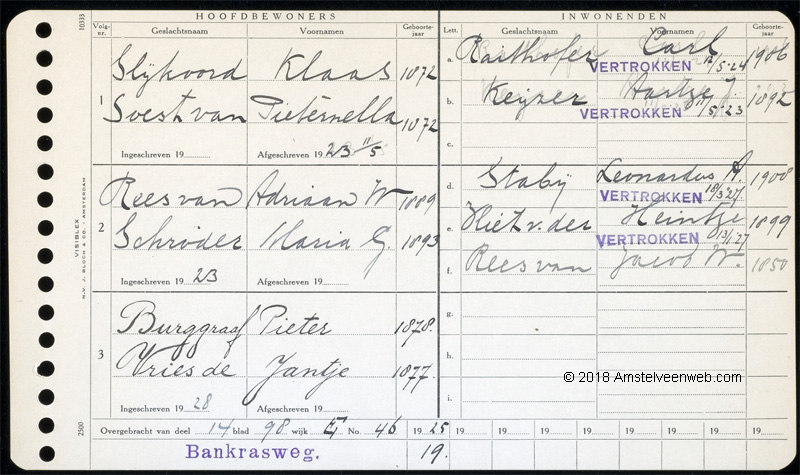 10333
HOOFDBEWONERS
Volg-nr. Geslachtsnaam Voornamen Geboorte-jaar
1
Slijkoord Klaas 1872
Soest van Pieternella 1872
Ingeschreven 19 Afgeschreven 19 23 11/5
2
Rees van Adriaan W 1889
Schröder Maria G. 1893
Ingeschreven 19 23 Afgeschreven 19
3
Burggraaf Pieter 1878.
Vries de Jantje 1877.
Ingeschreven 19 28 Afgeschreven 19
INWONENDEN
Lett. Geslachtsnaam Voornamen Geboorte-jaar
a. Raithofer Carl 1906
VERTROKKEN 12/5-24
b. Keijzer Aartje J. 1892
VERTROKKEN 11/5-23
c.
d. Staby Leonardus A. 1908
VERTROKKEN 18/3 '27.
e. Vliet v. der Heintje 1899
VERTROKKEN 13/1-27
f. Rees van Jacob W. 1850
g.
h.
i.
© 2018 Amstelveenweb.com
Overgebracht van deel 14 blad 98 wijk E No. 46 1925 19 19 19 19 19 19 19 19
Bankrasweg. 19.
VISIBLEX
N.V. J. BLOCH & CO. - AMSTERDAM
2500